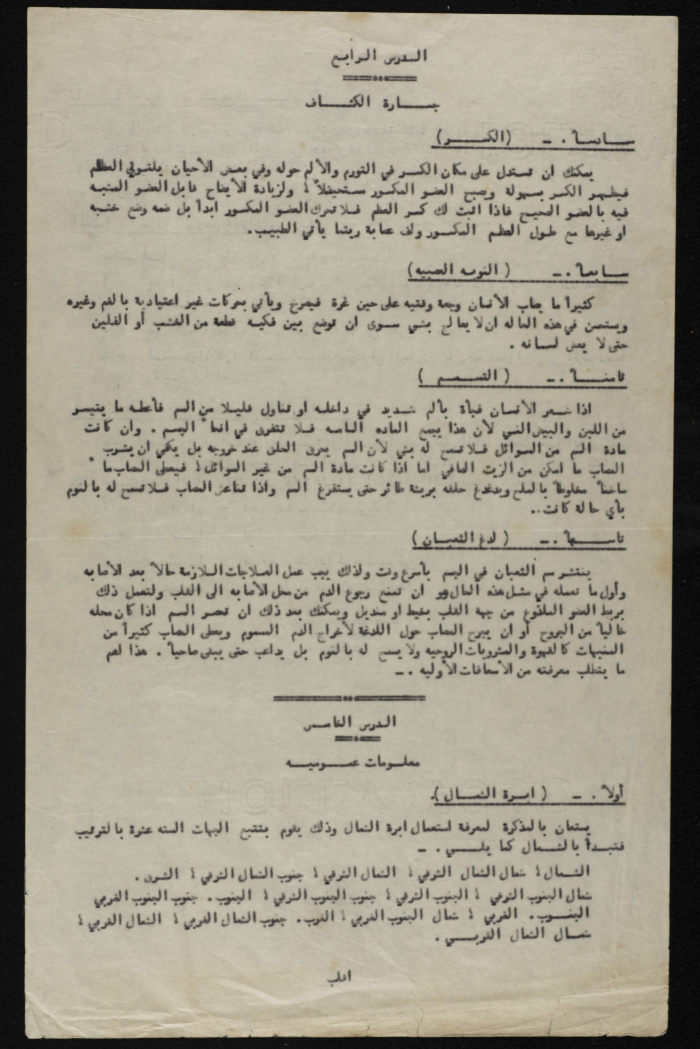 الدرس الرابع
جدارة الكشاف
سادساً . ـ (الكسر)
يمكنك ان تستدل على مكان الكسر في التورم والألم حوله وفي بعض الأحيان يلتوي العظم
فيظهر الكسر بسهولة ويصبح العضو المكسور مستحيلاً ؛ ولزيادة الأيضاح قابل العضو المشبه
فيه بالعضو الصحيح فاذا اثبت لك كسر العظم فلا تحرك العضو المكسور ابداً بل ضعه وضع خشبه
او غيرها مع طول العظم المكسور ولف عصابة ريثما يأتي الطبيب.
سابعاً . ـ ( النوبه العصبيه)
كثيراً ما يصاب الأنسان وبعة وفتيه على حين غرة فيصرخ ويأتي بحركات غير اعتيادية بالفم وغيره
ويستحسن في هذه الحاله ان لا يعالج بشي سوى ان توضع بين فكيه قطعة من الخشب أو الفلين
حتى لا يعض لسانه .
ثامنـاً . ـ ( التسمم )
اذا شعر الأنسان فجأة بألم شديد في داخله او تناول قليلا من السم فأعطه ما يتيسر
من اللبن والبيض النيي لأن هذا يجمع الماده السامه فلا تتفرق في انحاء الجسم . وان كانت
مادة السم من السوائل فلا تسمح له بشي لأن السم يحرق الحلق عند خروجه بل يكفي ان يشرب
المصاب ما امكن من الزيت الصافي اما اذا كانت مادة السم من غير السوائل ؛ فيعطى المصاب ماء
ساخناً مخلوطاً بالملح ويدغدغ حلقه بريشة طائر حتى يستفرغ السم واذا تناعس المصاب فلا تسمح له بالنوم
بأي حالة كانت .
تاسعاً . ـ ( لدغ الثعبان )
ينتشر سم الثعبان في الجسم بأسرع وقت ولذلك يجب عمل العلاجات اللازمة حالاً بعد الأصابه
وأول ما تعمله في مثل هذه الحال هو ان تمنع رجوع الدم من محل الأصابه الى القلب ولتعمل ذلك
بربط العضو الملدوغ من جهه القلب بخيط او منديل ويمكنك بعد ذلك ان تمصر السم اذا كان محله
خالياً من الجروح أو ان يجرح المصاب حول اللدغة لأخراج الدم المسموم ويعطى المصاب كثيراً من
المنبهات كالقهوة والمشروبات الروحيه ولا يسمح له بالنوم بل يداعب حتى يبقى صاحياً . هذا اهم
ما يتطلب معرفته من الأسعافات الأوليه . ـ
الدرس الخامس
معلومات عموميه
أولاً . ـ ( ابرة الشمال ).
يستعان بالمذكرة لمعرفة استعمال ابرة الشمال وذلك يقوم بتتبع الجهات السته عشرة بالترتيب
فتبدأ بالشمال كما يلي . ـ
الشمال ؛ شمال الشمال الشرقي ؛ الشمال الشرقي ؛ جنوب الشمال الشرقي ؛ الشرق .
شمال الجنوب الشرقي ؛ الجنوب الشرقي ؛ جنوب الجنوب الشرقي ؛ الجنوب . جنوب الجنوب الغربي
الجنوب . الغربي ؛ شمال الجنوب الغربي ؛ الغرب . جنوب الشمال الغربي ؛ الشمال الغربي ؛
شمال الشمال الغربي .
اقلب